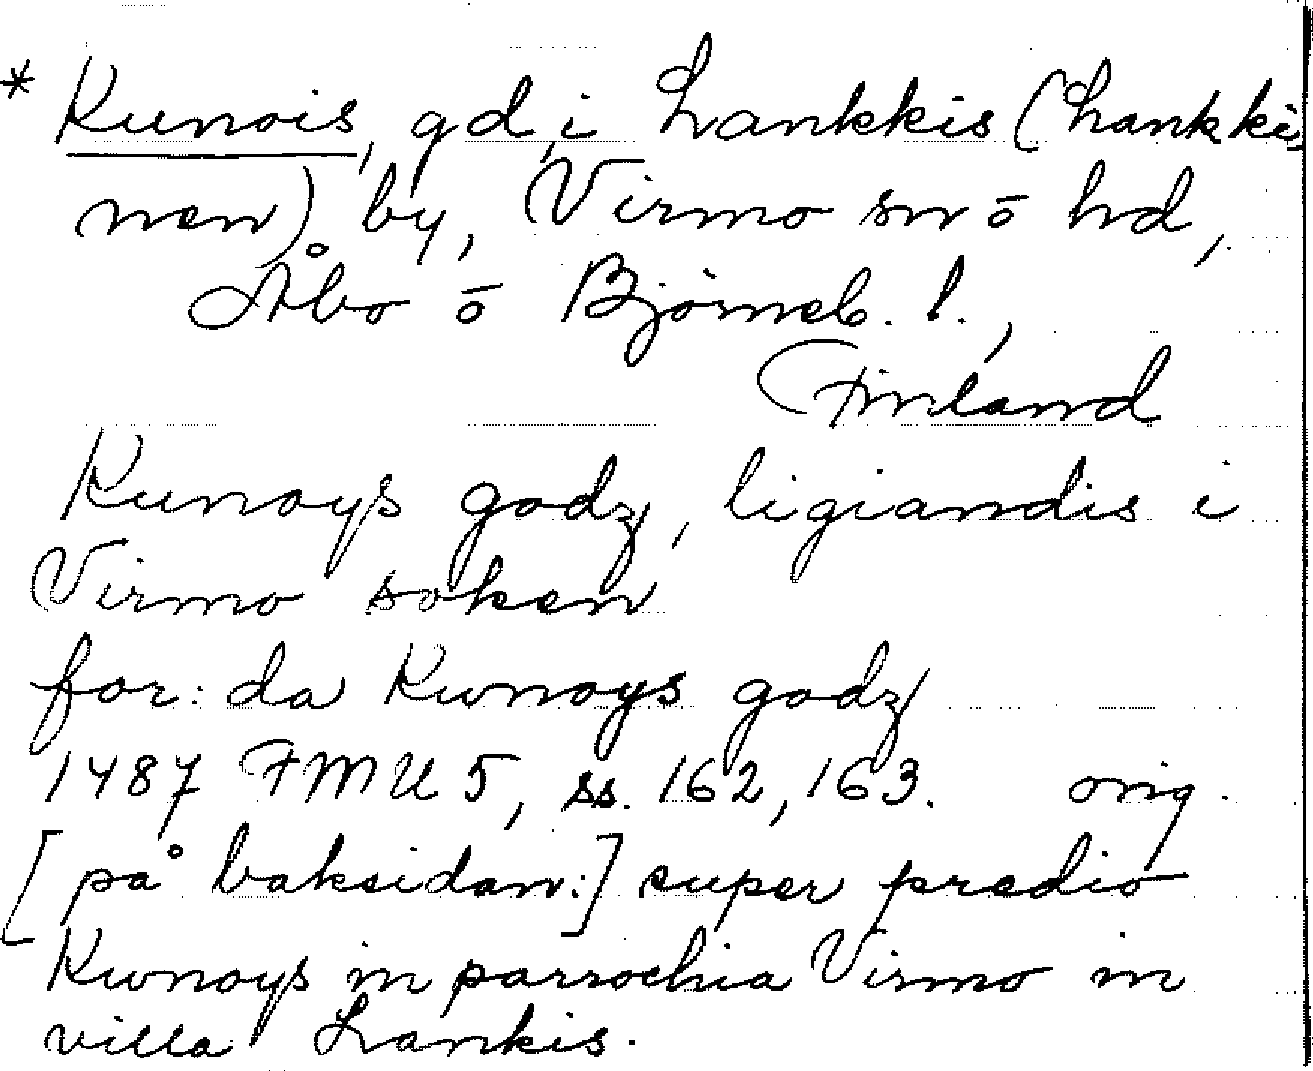 * Kunois, gd, i Lankkis (Lankki
nen) by, Virmo sn ō hd,
Åbo ō Björneb. l.,
Finland
Kunoys godz, ligiandis i
Virmo soken
for: da Kwnoys godz
1487 FMU 5, ss. 162, 163. orig.
[på baksidan:] super predio
Kwnoys in parrochia Virmo in
villa Lankis.